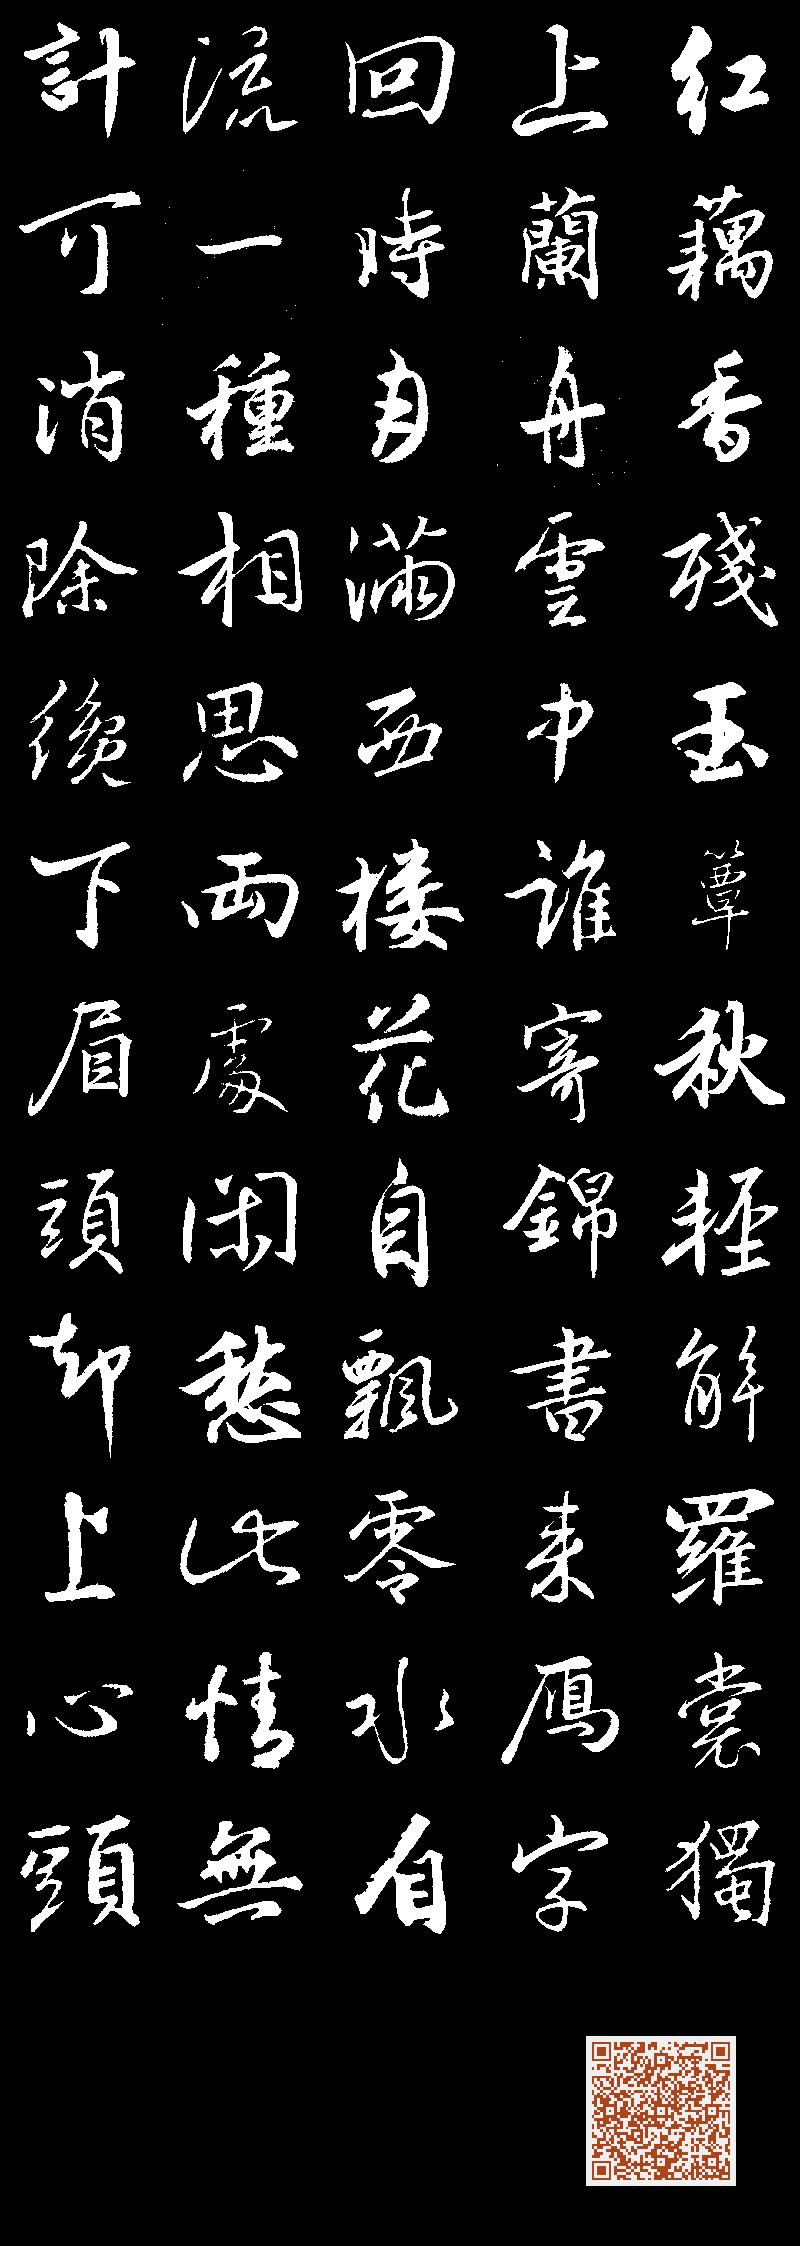 紅藕香殘玉簟秋輕解羅裳獨
上蘭舟雲中誰寄錦書来鴈字
回時月滿西楼花自飄零水自
流一種相思兩處閑愁此情無
計可消除纔下眉頭却上心頭